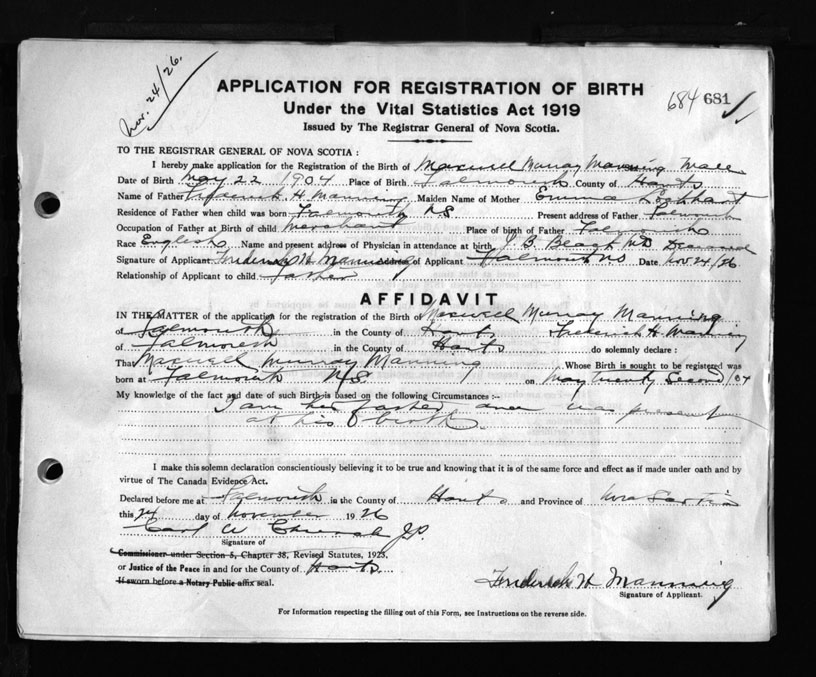 Nov. 24/26.
APPLICATION FOR REGISTRATION OF BIRTH
684 681
Under the Vital Statistics Act 1919
Issued by The Registrar General of Nova Scotia.
TO THE REGISTRAR GENERAL OF NOVA SCOTIA :
I hereby make application for the Registration of the Birth of Maxwell Murray Manning Male
Date of Birth May 22 1904 Place of Birth Falmouth County of Hants
Name of Father Frederick H Manning Maiden Name of Mother Emma Lockhart
Residence of Father when child was born Falmouth N S Present address of Father Falmouth
Occupation of Father at Birth of child Merchant Place of birth of Father Falmouth
Race English Name and present address of Physician in attendance at birth J. B. Black MD Deceased
Signature of Applicant Frederick H Manning Address of Applicant Falmouth N S Date Nov 24/26
Relationship of Applicant to child Father
AFFIDAVIT
IN THE MATTER of the application for the registration of the Birth of Maxwell Murray Manning
of Falmouth in the County of Hants Frederick H Manning
of Falmouth in the County of Hants do solemnly declare :
That Maxwell Murray Manning Whose Birth is sought to be registered was
born at Falmouth N.S. on May twenty Second /04
My knowledge of the fact and date of such Birth is based on the following Circumstances :-
I am his father and was present
at his birth.
I make this solemn declaration conscientiously believing it to be true and knowing that it is of the same force and effect as if made under oath and by
virtue of The Canada Evidence Act.
Declared before me at Falmouth in the County of Hants and Province of Nova Scotia
this 24 day of November 1926
Carl W Church J.P.
Signature of
Commissioner under Section 5, Chapter 38, Revised Statutes, 1923,
or Justice of the Peace in and for the County of Hants
If sworn before a Notary Public affix seal.
Frederick H Manning
Signature of Applicant.
For Information respecting the filling out of this Form, see Instructions on the reverse side.